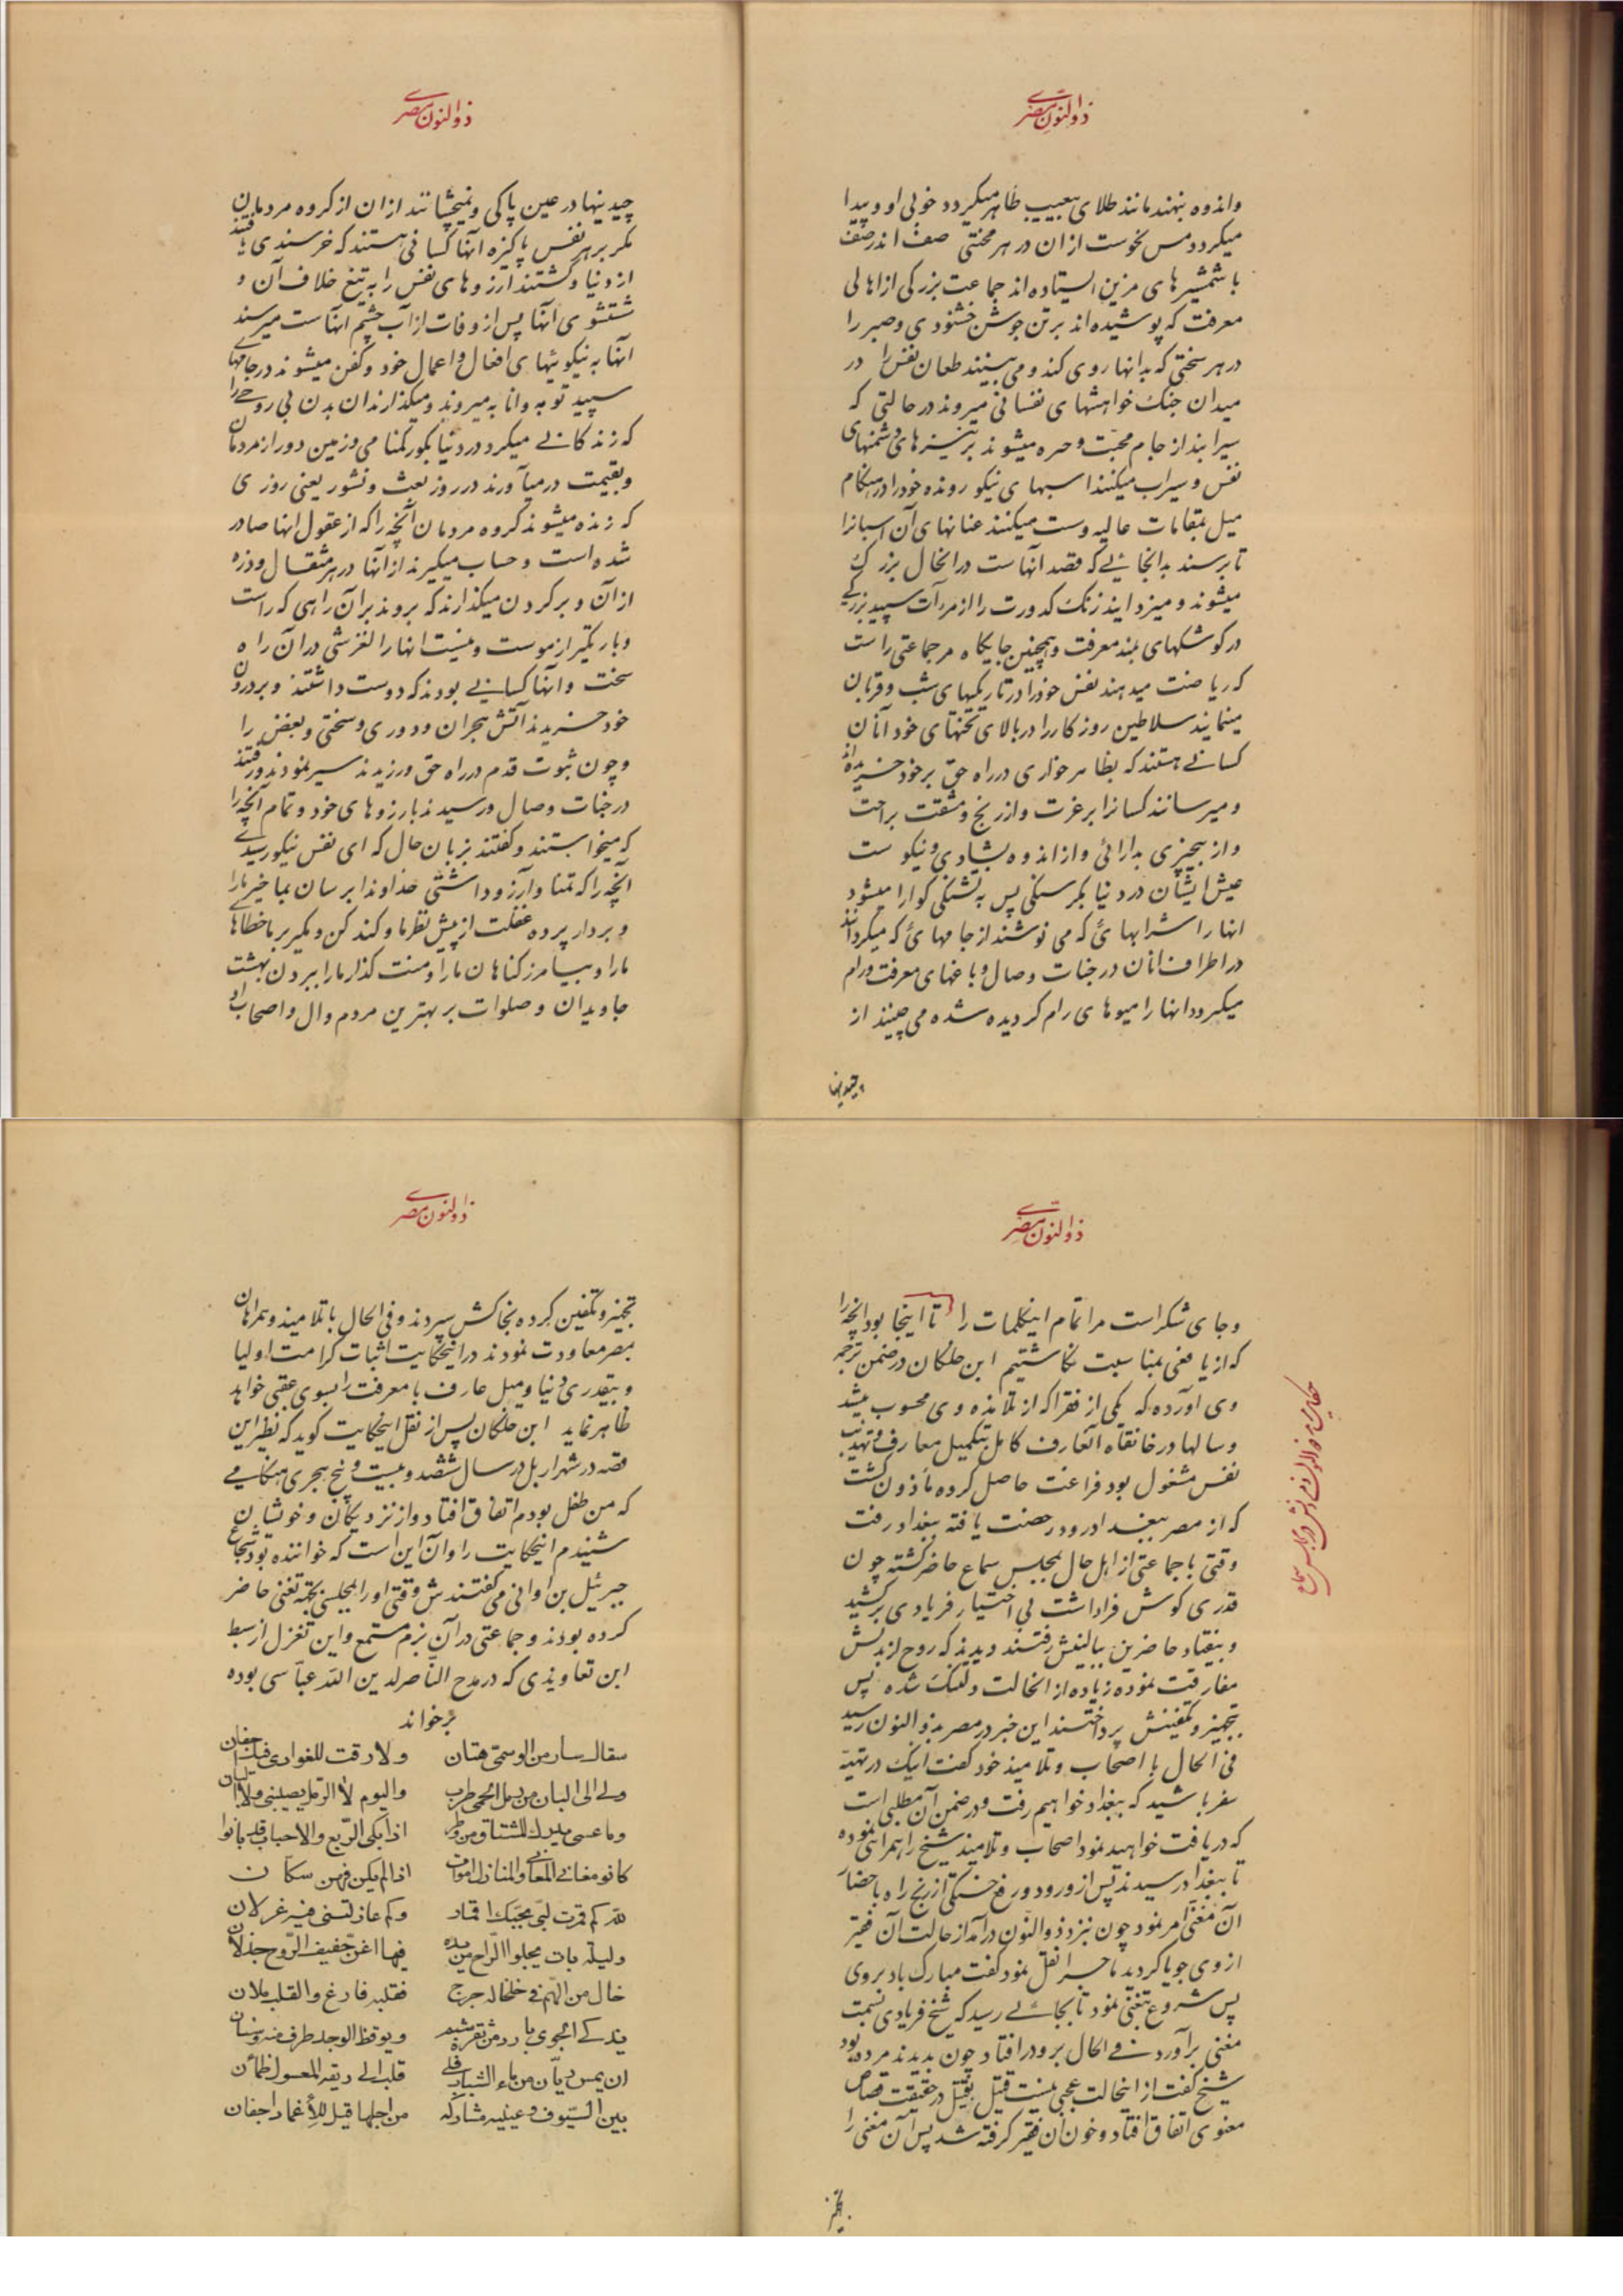 ذوالنون مصری
واندوه بنهند مانند طلای بیعیب ظاهر میگردد خوبی او و پیدا
میگردد مس نحوست ازان در هر محنتی صف اندر صف
با شمشیرهای مزین ایستاده اند جماعت بزرگی از اهالی
معرفت که پوشیده اند برتن جوشن خشنودی و صبر را
در هر سختی که بدانها روی کند و می بینند طعان نفس را در
میدان جنک خواهشهای نفسانی میروند در حالتی که
سیرابند از جام محبت و حره میشوند بر نیزهای دشمنهای
نفس و سیراب میکنند اسبهای نیکو رونده خود را در هنکام
میل بمقامات عالیه و سست میکنند عنانهای آن اسبانرا
تا برسند بدانجائیکه قصد آنهاست در انحال بزرک
میشوند و میزدایند زنک کدورت را از مرآت سپید بزرکی
در کوشکهای بلند معرفت و همچنین جایکاه مر جماعتی راست
که ریاضت میدهند نفس خود را در تاریکیهای شب و قربان
مینمایند سلاطین روزکار را در بالای تختهای خود آنان
کسانی هستند که بظاهر خواری در راه حق بر خود خریده‌اند
و میرسانند کسانرا بر عزت و از رنج و مشقت براحت
و از بیچیزی بدارائی و از اندوه بشادی و نیکوست
عیش ایشان در دنیا بکرسنکی پس به تشنکی کوارا میشود
انها را شرابهائی که می نوشند از جامهائی که میکردانند
در اطراف انان در جنات وصال و باغهای معرفت و رام
میکردد انها را میوهای رام کردیده شده می چینند از
چیدنیها
ذوالنون مصری
چیدنیها در عین پاکی و نمیچشانند ازان از کروه مردمان
مکر بر هر نفس پاکیزه آنها کسانی هستند که خرسندی یافتند
از دنیا و کشتند آرزوهای نفس را به تیغ خلاف آن و
شستشوی آنها پس از وفات از آب چشم انهاست میرسند
آنها به نیکوئیهای افعال و اعمال خود و کفن میشوند در جامهای
سپید توبه و انابه میروند و میکذارند ان بدن بی روح را
که زندکانی میکرد در دنیا بکور کمنامی در زمین دور از مردمان
و بقیمت درمیآورند در روز بعث و نشور یعنی روزی
که زنده میشوند کروه مردمان آنچه را که از عقول انها صادر
شده است و حساب میکیرند از آنها در هر مثقال و ذره
از آن و بر کردن میکذارند که بروند بران راهی که راست
و باریکتر از موست و نیست انها را لغزشی در آن راه
سخت و آنها کسانی بودند که دوست داشتند و بر درون
خود خریدند آتش هجران و دوری و سختی و بعض را
و چون ثبوت قدم در راه حق ورزیدند سیر نمودند و رفتند
در جنات وصال و رسیدند بارزوهای خود و تمام آنچه را
که میخواستند و کفتند بزبان حال که ای نفس نیکو رسیدی
آنچه را که تمنا و آرزو داشتی خداوندا برسان بما خیر مارا
و بردار پرده غفلت از پیش نظر ما و کند کن و مکیر بر ما خطاها
مارا و بیامرز کناهان مارا و منت کذار مارا ببردن بهشت
جاویدان و صلوات بر بهترین مردم و ال و اصحاب او
ذوالنون مصری
و جای شکر است مر اتمام اینکلمات را تا اینجا بود آنچه را
که از یافعی بمناسبت نکاشتیم ابن خلکان در ضمن ترجمه
وی آورده که یکی از فقرا که از تلامذه وی محسوب میشد
و سالها در خانقاه آنعارف کامل بتکمیل معارف و تهذیب
نفس مشغول بود فراغت حاصل کرده مأذون کشت
که از مصر ببغداد رود رخصت یافته ببغداد رفت
وقتی با جماعتی از اهل حال بمجلس سماع حاضر کشته چون
قدری کوش فراداشت بی اختیار فریادی برکشید
و بیفتاد حاضرین ببالینش رفتند دیدند که روح از بدنش
مفارقت نموده زیاده از انحالت دلتنک شده پس
بتجهیز و تکفینش پرداختند این خبر در مصر بذوالنون رسید
فی الحال با اصحاب و تلامیذ خود کفت اینک در تهیه
سفر باشید که ببغداد خواهیم رفت و در ضمن آن مطلبی است
که دریافت خواهید نمود اصحاب و تلامیذ شیخ را همراهی نموده
تا ببغداد رسیدند پس از ورود و رفع خستکی از رنج راه باحضار
آن مغنی امر نمود چون نزد ذوالنون درآمد از حالت آن فقیر
از وی جویا کردید ماجرا نقل نمود کفت مبارک باد بروی
پس شروع بتغنی نمود تا بجائی رسید که شیخ فریادی بسمت
مغنی برآورد فی الحال برو درافتاد چون بدیدند مرده بود
شیخ کفت از اینحالت عجبی نیست قتیل بقتیل در حقیقت قصاص
معنوی اتفاق افتاد و خون ان فقیر کرفته شد پس آن مغنی را
تجهیز
ذوالنون مصری
تجهیز و تکفین کرده بخاکش سپردند و فی الحال با تلامیذ و همراهان
بمصر معاودت نمودند در اینحکایت اثبات کرامت اولیا
و بیقدری دنیا و میل عارف با معرفت را بسوی عقبی خواهد
ظاهر نماید ابن خلکان پس از نقل اینحکایت کوید که نظیر این
قصه در شهر اربل در سال ششصد و بیست و پنج هجری هنکامی
که من طفل بودم اتفاق افتاد و از نزدیکان و خویشان
شنیدم اینحکایت را و آن این است که خواننده بود شجاع
جبرئیل بن اوانی می کفتندش وقتی او را بمجلسی بجهة تغنی حاضر
کرده بودند و جماعتی در آن بزم مستمع و این تغزل از سبط
ابن تعاویذی که در مدح الناصرلدین الله عباسی بوده
برخواند
سقاك سار من الوسمی هتان ولا رقت للغوادی فیك اجفان
ولی الی البان من رمل الحمی طرب والیوم لا الرمل یصبینی ولا البان
وما عسی یدرك المشتاق من وطر اذا بکی الربع والاحباب قد بانوا
کانوا معانی المغانی والمنازل اموات اذا لم یکن فیهن سکان
لله کم قمرت لبی بجوك اقمار وکم غازلتنی فیه غزلان
ولیلة بات یجلو الراح من یده فیها اغن خفیف الروح جذلان
خال من الهم فی خلخاله حرج فقلبه فارغ والقلب ملآن
یذکی الجوی بارد من ثغره شبم ویوقظ الوجد طرف منه وسنان
ان یمس ریان من ماء الشباب فلی قلب الی ریقه المعسول ظمآن
بین السیوف وعینیه مشارکة من اجلها قیل للأغماد اجفان